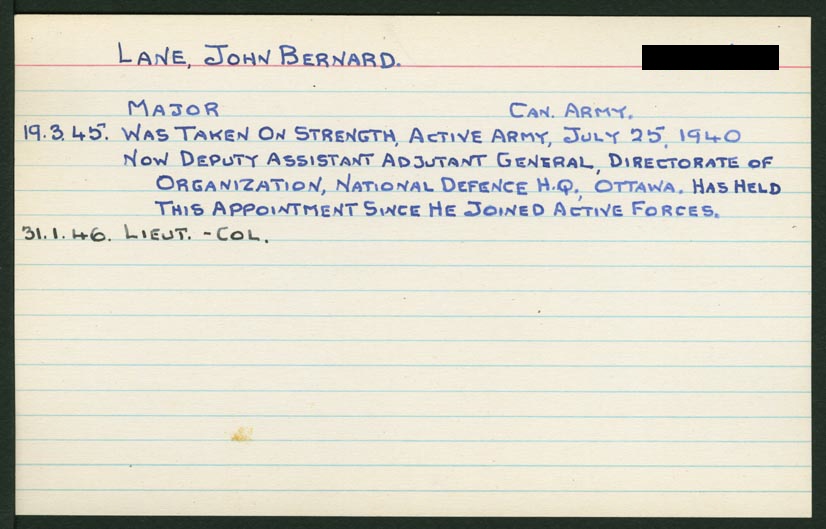 LANE, JOHN BERNARD.
MAJOR CAN. ARMY.
19.3.45. WAS TAKEN ON STRENGTH, ACTIVE ARMY, JULY 25, 1940
NOW DEPUTY ASSISTANT ADJUTANT GENERAL, DIRECTORATE OF
ORGANIZATION, NATIONAL DEFENCE H.Q., OTTAWA. HAS HELD
THIS APPOINTMENT SINCE HE JOINED ACTIVE FORCES.
31.1.46. LIEUT. - COL.